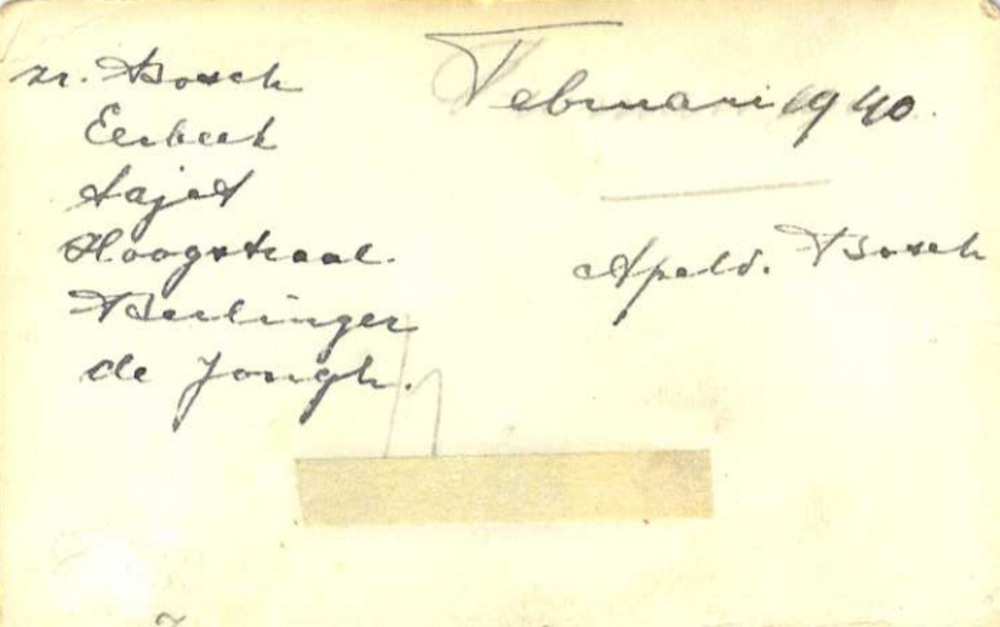 zr. Bosch
Eerbeek
Sajet
Hoogstraal.
Berlinger
de Jongh.
Februari 1940.
Apeld. Bosch